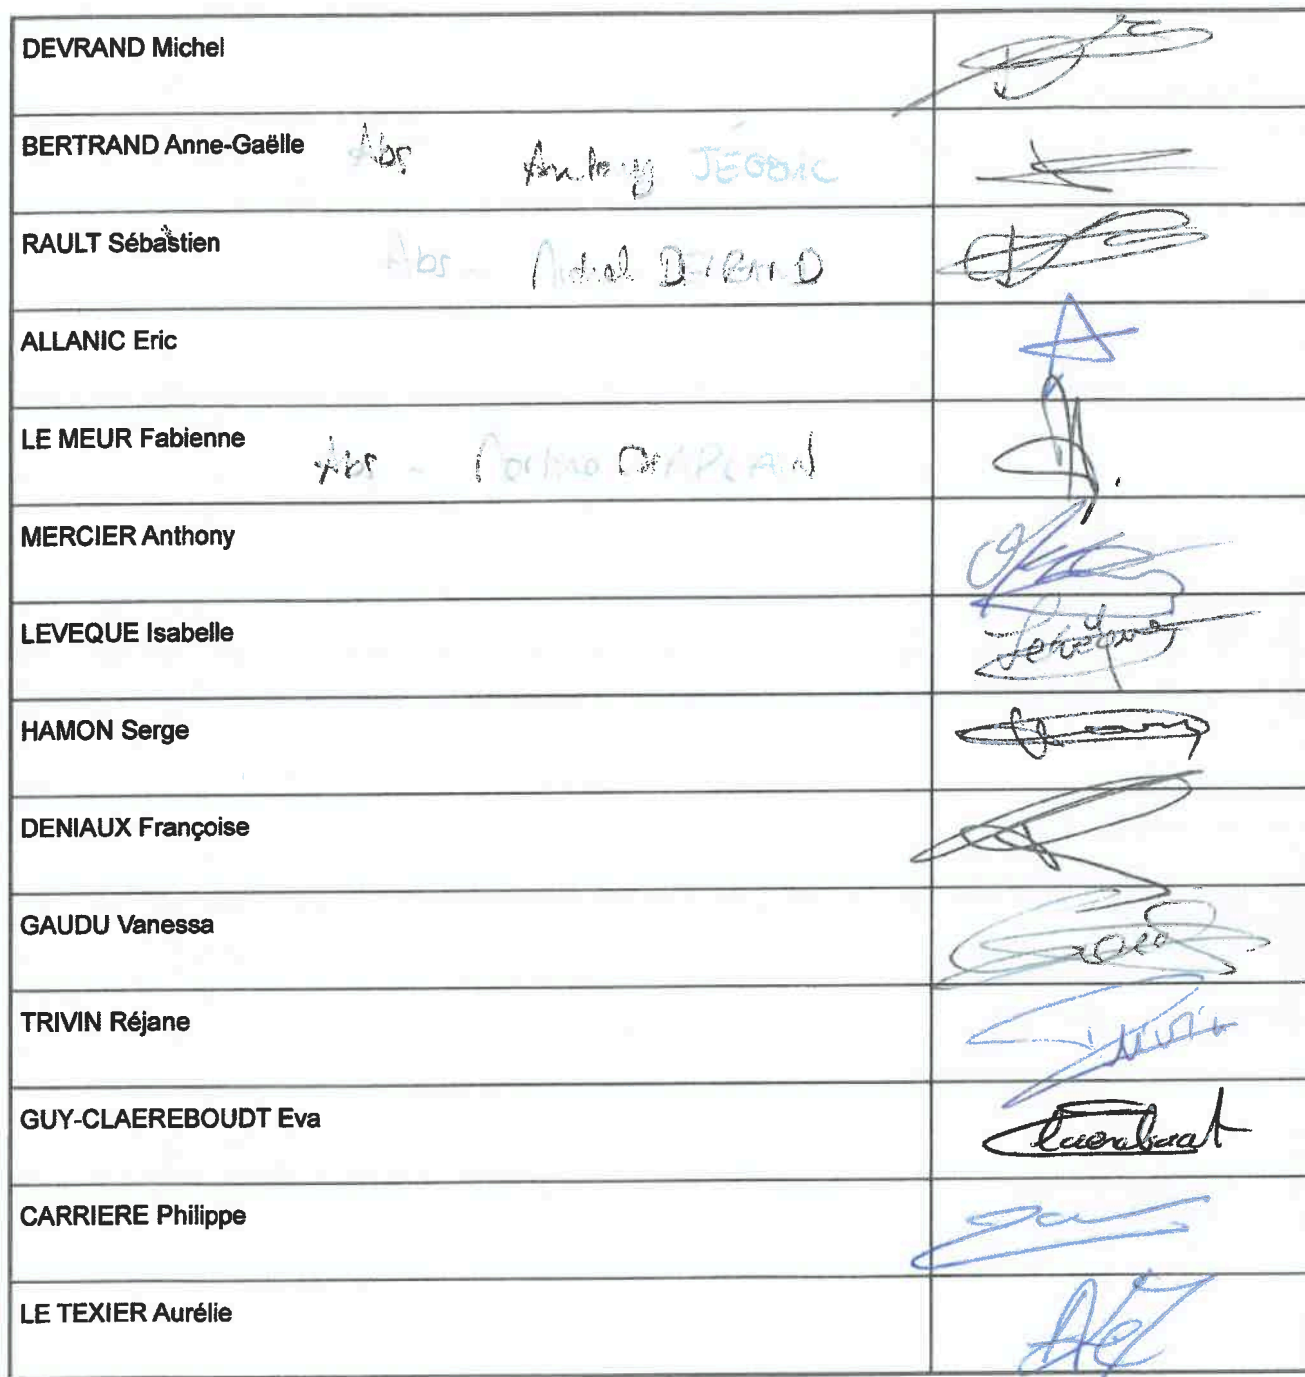 DEVRAND Michel
BERTRAND Anne-Gaëlle Abs Anthony JÉGOUIC
RAULT Sébastien Abs - Michel DEVRAND
ALLANIC Eric
LE MEUR Fabienne Abs -
MERCIER Anthony
LEVEQUE Isabelle Levêque
HAMON Serge
DENIAUX Françoise
GAUDU Vanessa
TRIVIN Réjane
GUY-CLAEREBOUDT Eva
CARRIERE Philippe
LE TEXIER Aurélie